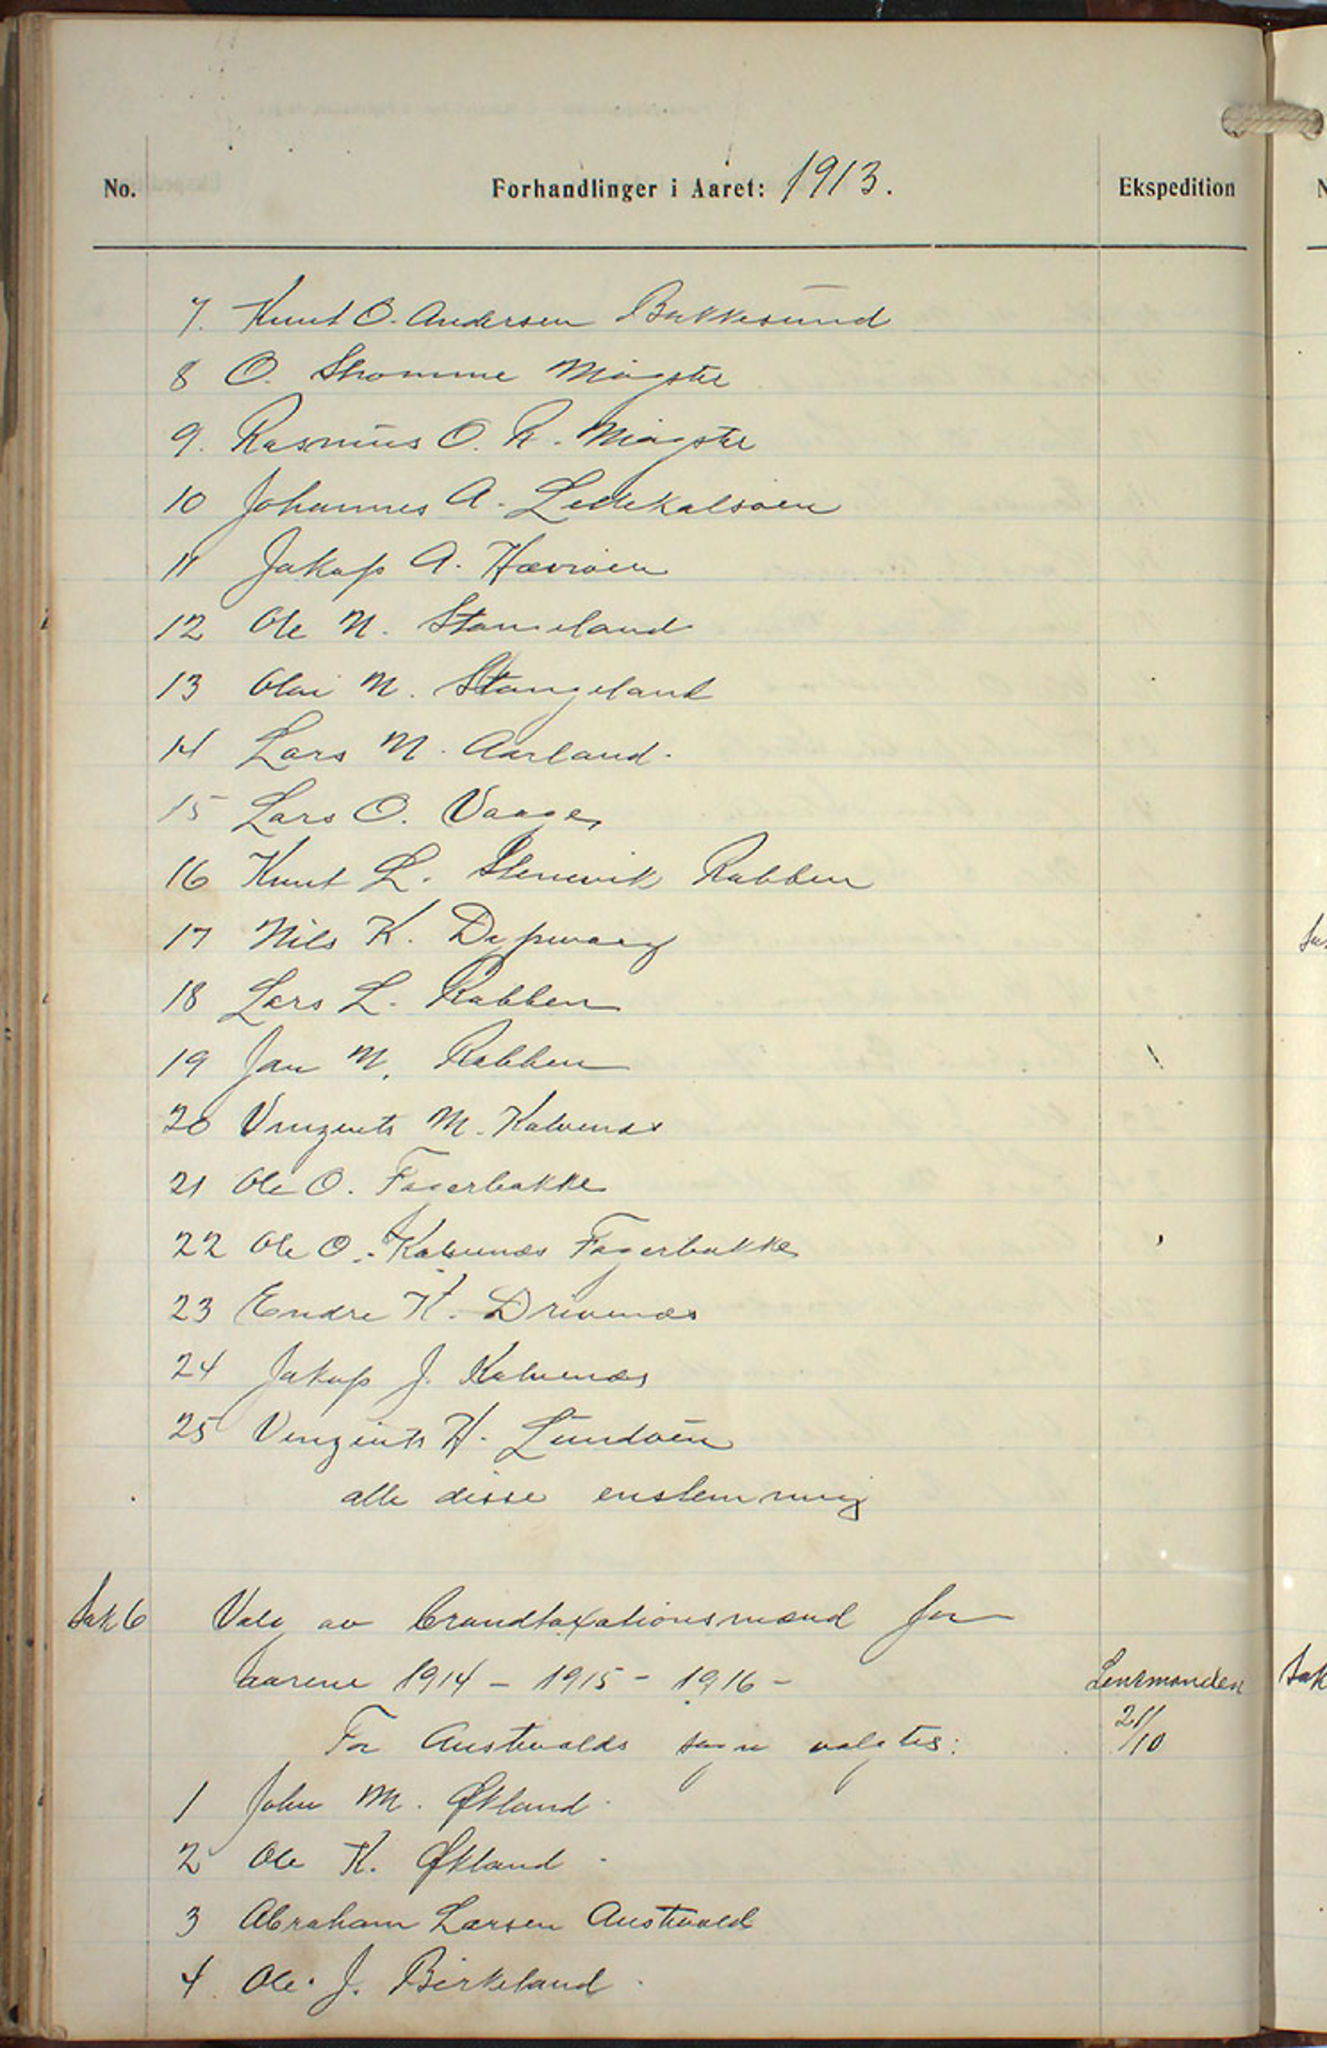 No. Forhandlinger i Aaret: 1913. Ekspedition
7. Knut O. Andersen Bakkesund
8 O. Shomme Møgster
9. Rasmus O. R. Møgster
10 Johannes A. Litlekalsøen
11 Jakop A. Hevrøen
12 Ole N. Stangeland
13 Olai N. Stangeland
14 Lars M. Aarland.
15 Lars O. Vaage
16 Knut L. Stenevik Rabben
17 Nils K. Dypevaag
18 Lars L. Rabben
19 Jan M. Rabben
20 Vingents M. Kalvenes
21 Ole O. Fagerbakke
22 Ole O. Kalvenæs Fagerbakke
23 Endre K. Drivenæs
24 Jakop J. Kalvenæs
25 Vingents H. Lundøen
alle disse enstemmig
Sak 6 Valg av brandtaxationsmænd for
aarene 1914 - 1915 - 1916 - Lensmanden
For Austevolds sogn valgtes: 21/10
1 John M. Økland
2 Ole K. Økland
3 Abraham Larsen Austevold
4 Ole J. Birkeland
Sak